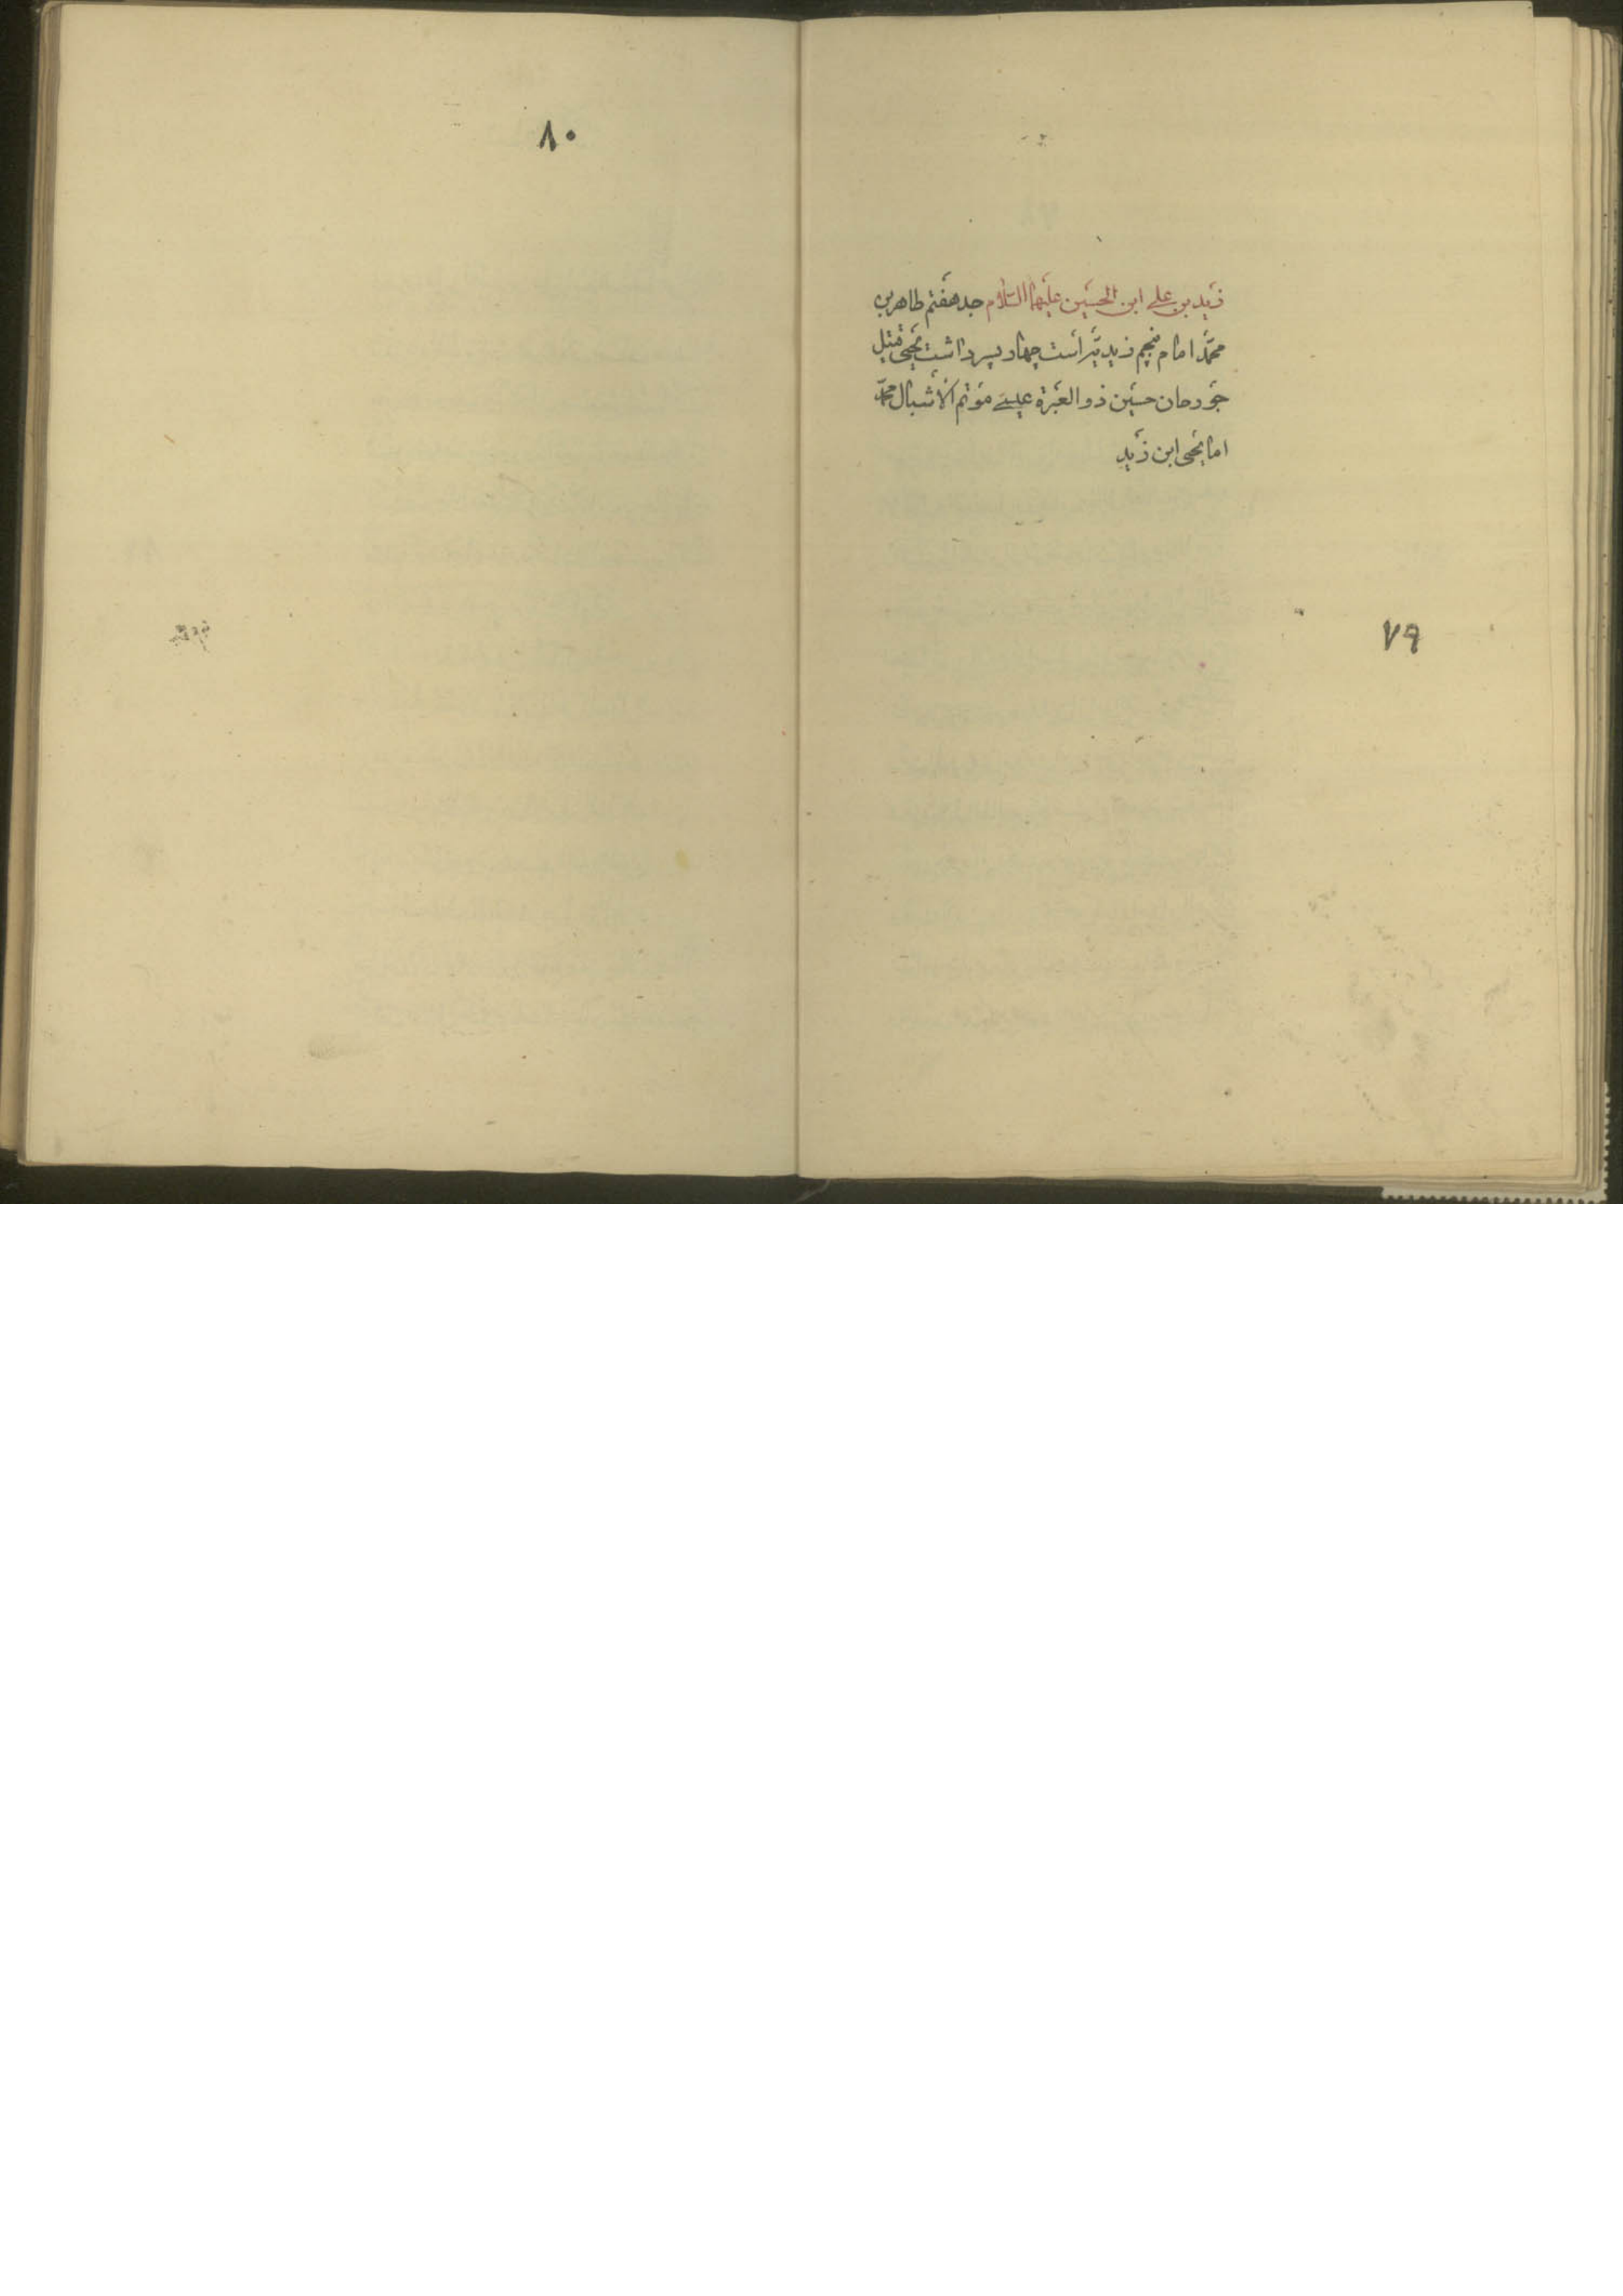 زید بن علی ابن الحسین علیهما السلام جد هفتم طاهر بن
محمّد امام پنجم زیدیّه است چهار پسر داشت یحیی قتیل
جوزجان حسین ذو العبرة عیسی موتم الأشبال محمّد
اما یحیی ابن زید
۷۹
۸۰